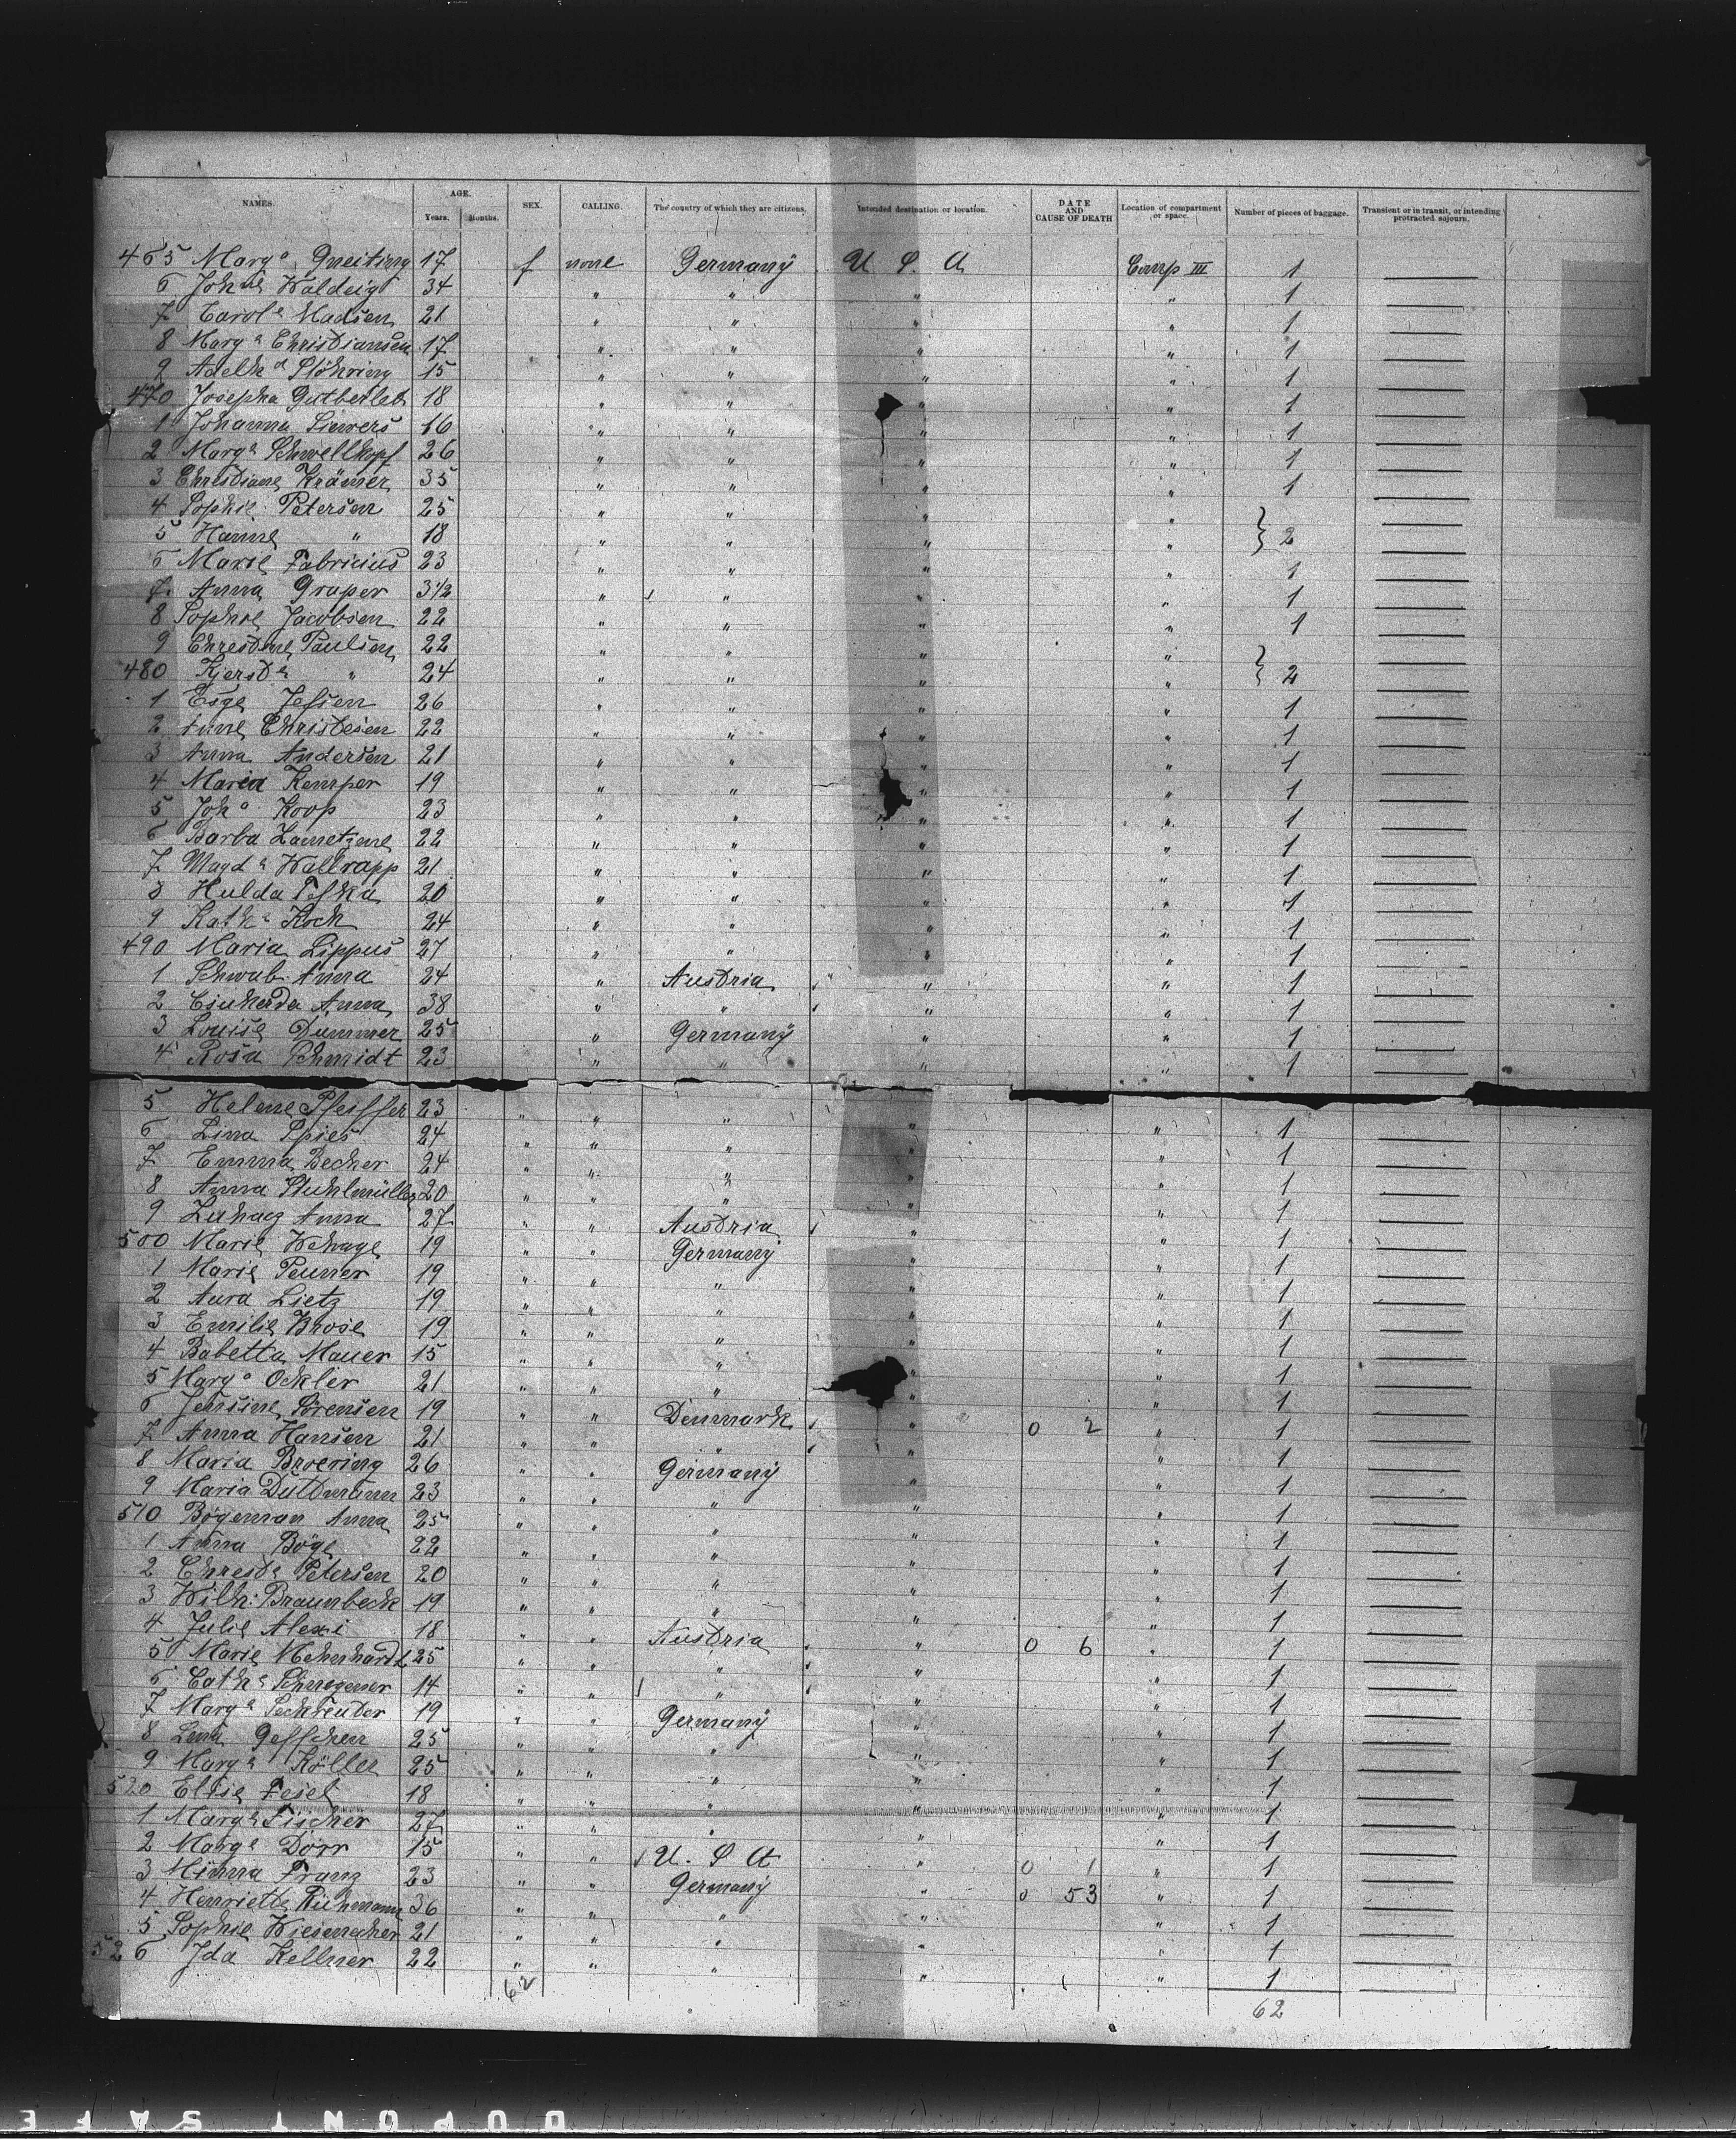 NAMES. AGE. SEX. CALLING. The country of which they are citizens. Intended destination or location. DATE AND CAUSE OF DEATH Location of compartment or space. Number of pieces of baggage. Transient or in transit, or intending protracted sojourn.
Years. Months.
465 Marga Gneiting 17 f none Germany U S A Comp III 1
6 Johne Waldeig 34 " " " " 1
7 Carole Madsen 21 " " " " 1
8 Marga Christiansen 17 " " " " 1
9 Adelhd Stöhring 15 " " " " 1
470 Josepha Gutberlet 18 " " " " 1
1 Johanna Siewers 16 " " " " 1
2 Marga Schwellkopf 26 " " " " 1
3 Christiane Krämer 35 " " " " 1
4 Sophie Petersen 25 " " " "
5 Hanne " 18 " " " " } 2
6 Marie Fabricius 23 " " " " 1
7 Anna Graper 3 1/2 " " " " 1
8 Sophie Jacobsen 22 " " " " 1
9 Christine Paulsen 22 " " " "
480 Kjerste " 24 " " " " } 2
1 Esge Jessen 26 " " " " 1
2 Anne Christesen 22 " " " " 1
3 Anna Andersen 21 " " " " 1
4 Maria Kemper 19 " " " " 1
5 Joha Koop 23 " " " " 1
6 Barba 22 " " " " 1
7 Magda Wallrapp 21 " " " " 1
8 Hulda Teska 20 " " " " 1
9 Katha Koch 24 " " " " 1
490 Maria Lippus 27 " " " " 1
1 Schwab Anna 24 " Austria " " 1
2 Anna 38 " " " " 1
3 Louise Dummer 25 " Germany " " 1
4 Rosa Schmidt 23 " " " " 1
5 Helene Pfeiffer 23 " " " " " 1
6 Lina Spies 24 " " " " " 1
7 Emma Becker 24 " " " " " 1
8 Anna Stuhlmüller 20 " " " " " 1
9 Zuhacz Anna 27 " " Austria " " 1
500 Marie Wehage 19 " " Germany " " 1
1 Marie Penner 19 " " " " " 1
2 Aura Lietz 19 " " " " " 1
3 Emilie Krose 19 " " " " " 1
4 Babetta Mauer 15 " " " " " 1
5 Marga Ockler 21 " " " " " 1
6 Jensine Sörensen 19 " " Denmark " 0 2 " 1
7 Anna Hansen 21 " " " " " 1
8 Maria Broering 26 " " Germany " " 1
9 Maria Duttmann 23 " " " " " 1
510 Bögeman Anna 25 " " " " " 1
1 Anna Böge 22 " " " " " 1
2 Christe Petersen 20 " " " " " 1
3 Wilh: Braunbeck 19 " " " " " 1
4 Julie Alexi 18 " " Austria " 0 6 " 1
5 Marie 25 " " " " " 1
6 Cathe 14 " " " " " 1
7 Marga Sechreuter 19 " " Germany " " 1
8 Lena Geffcken 25 " " " " " 1
9 Marga Köller 25 " " " " " 1
520 Elise Fesel 18 " " " " " 1
1 Marga Fischer 27 " " " " " 1
2 Marge Dörr 15 " " U. S A " 0 1 " 1
3 Minna Franz 23 " " Germany " 0 53 " 1
4 Henriette Rühmann 36 " " " " " 1
5 Sophie Wiesenacker 21 " " " " " 1
526 Ida Kellner 22 " " " " " 1
62 62
DUPONT SAFE